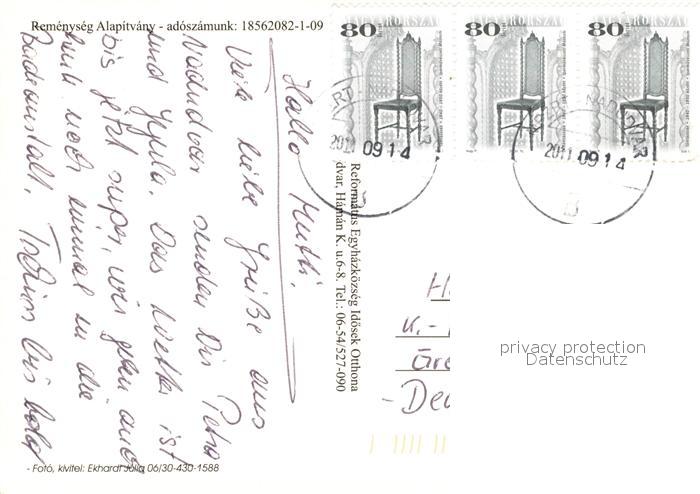 Reménység Alapítvány - adószámunk: 18562082-1-09
Hallo Mutti.
Viele liebe Grüße aus
Nádudvar senden Dir Petra
und Gyula. Das Wetter ist
bis jetzt super, wir gehen auch
heute noch einmal in die
Badeanstalt. Tschüss bis bald
- Fotó, kivitel: Ekhardt Júlia 06/30-430-1588
Református Egyházközség Idősek Otthona
dvar, Hámán K. u.6-8. Tel.: 06-54/527-090
80 MAGYARORSZÁG
80 MAGYARORSZÁG
80 MAGYARORSZÁG
2011 09 14
2011 09 14
H
K.-
Gre
- Deu
privacy protection
Datenschutz